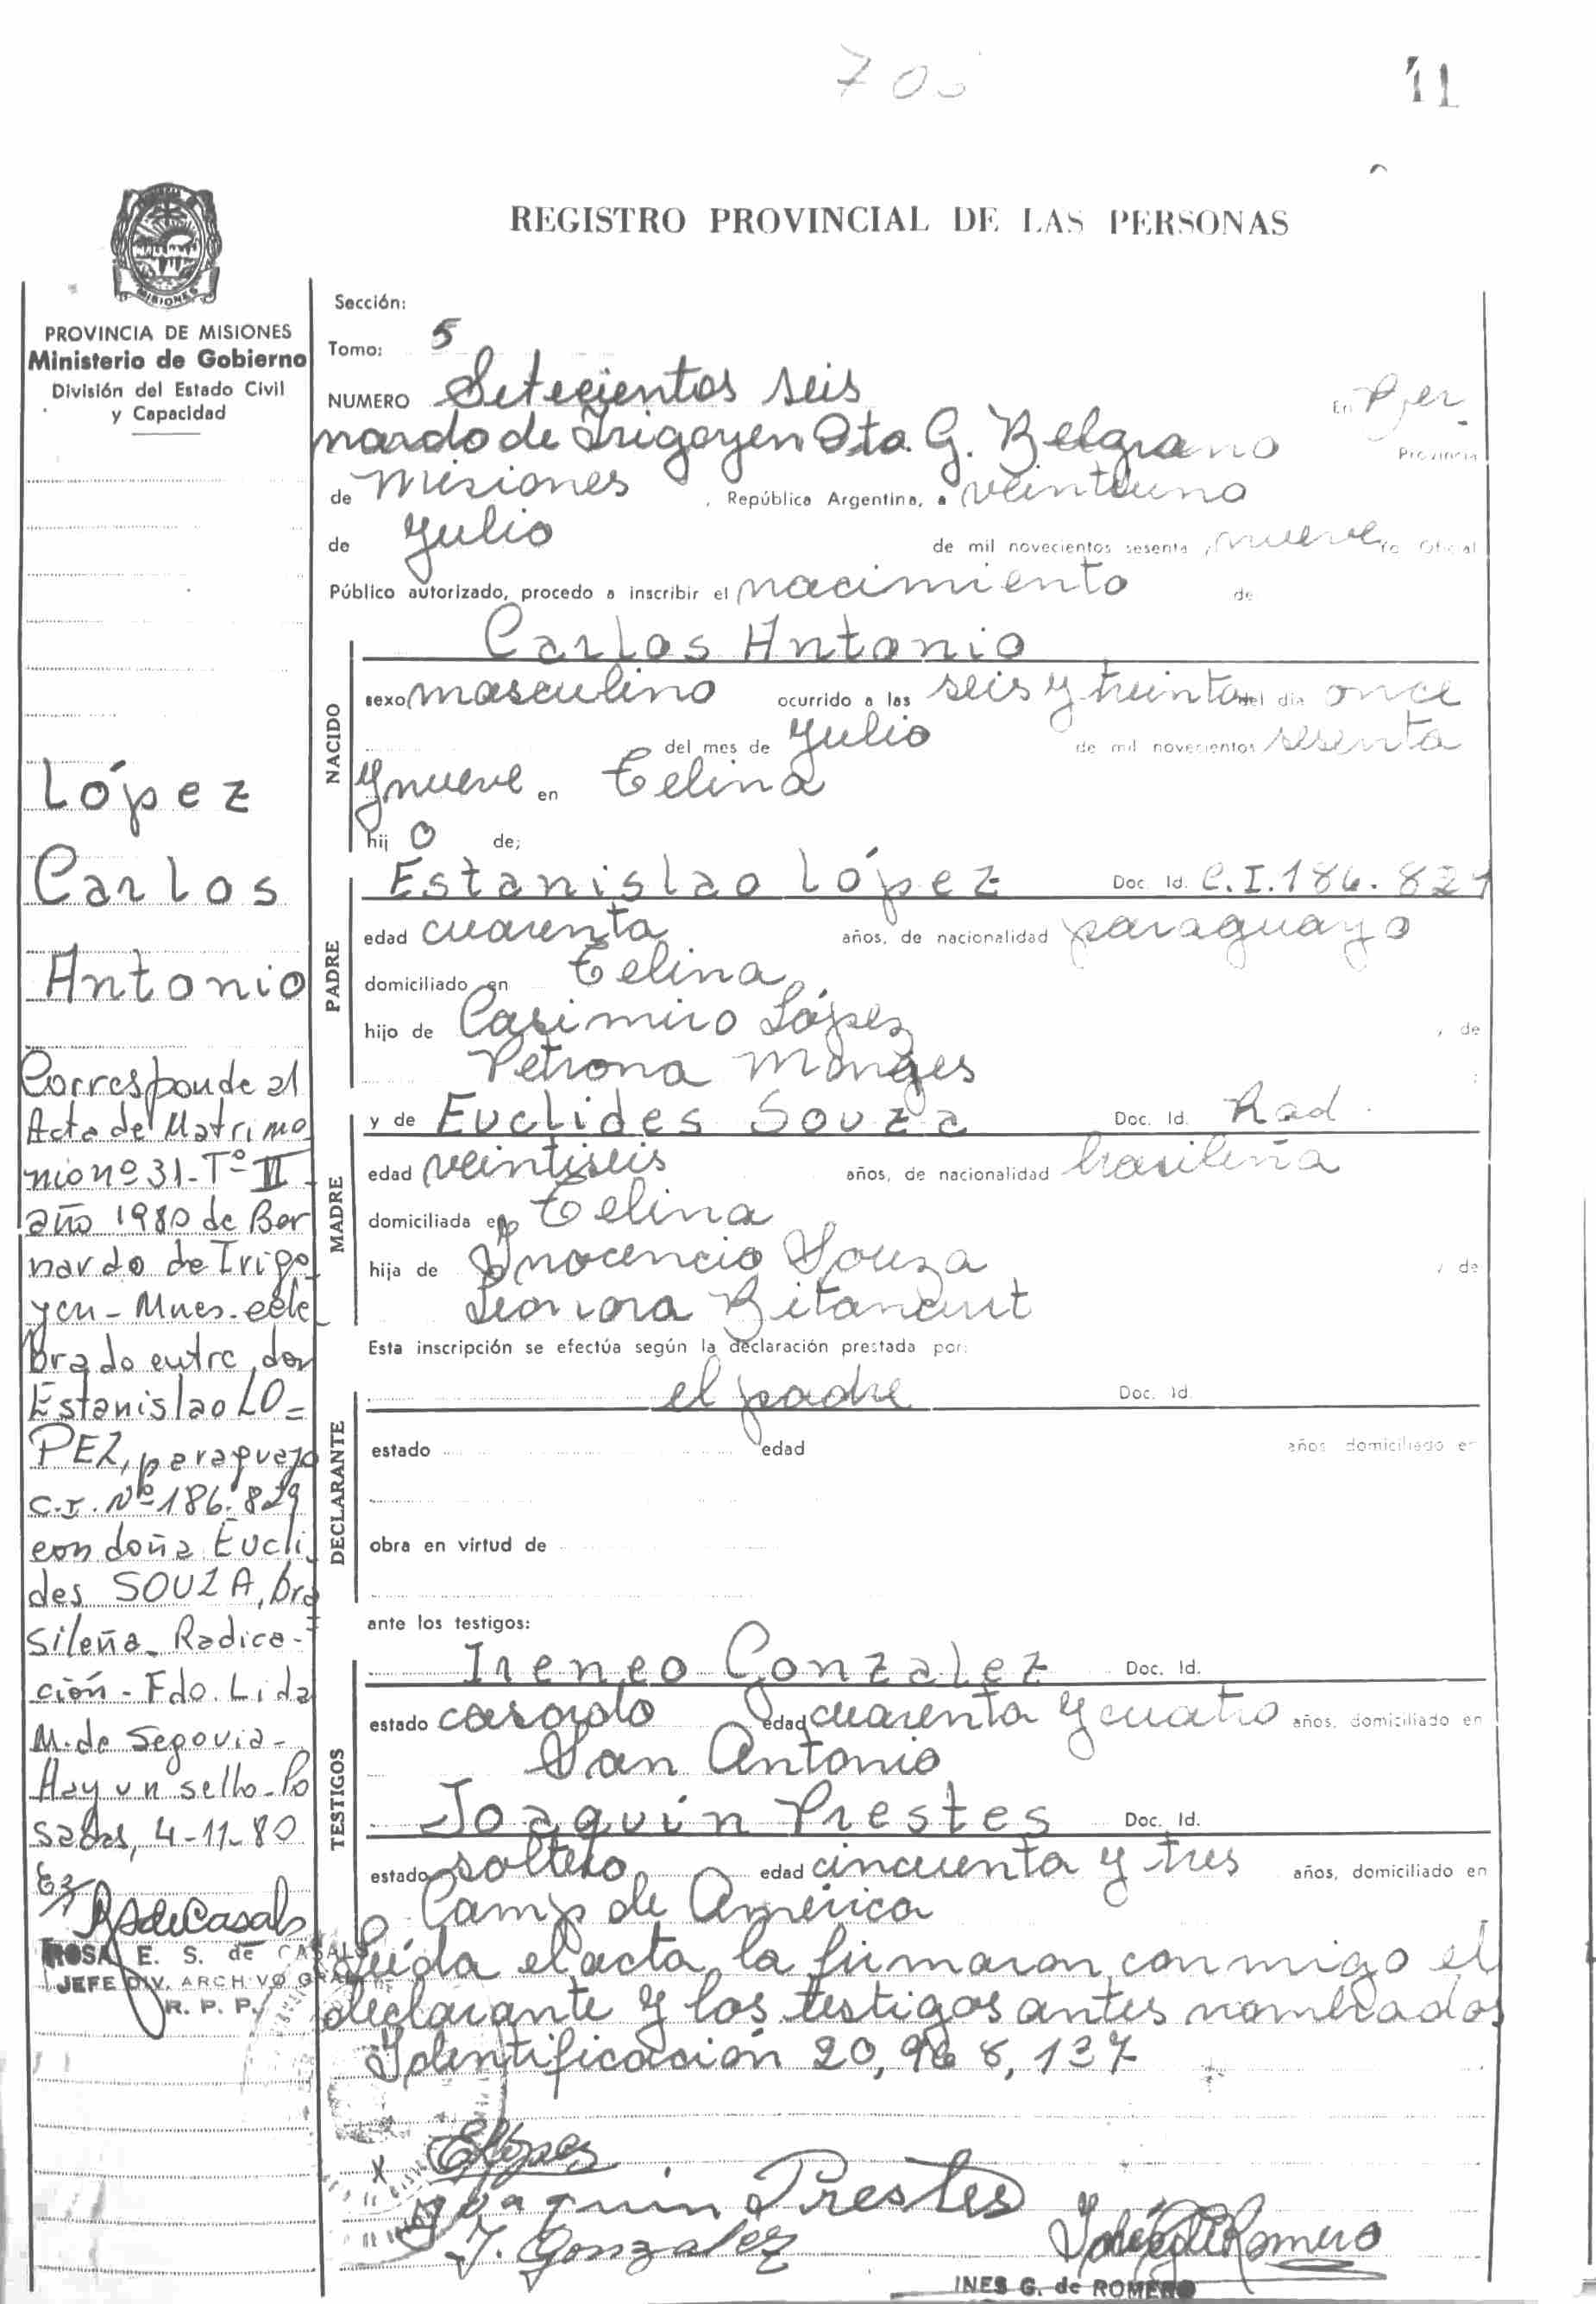 706
11
REGISTRO PROVINCIAL DE LAS PERSONAS
MISIONES
PROVINCIA DE MISIONES
Ministerio de Gobierno
División del Estado Civil
y Capacidad
López
Carlos
Antonio
Corresponde al
Acta de Matrimo
nio nº 31-Tº II
año 1980 de Ber
nardo de Irigo
yen - Mnes. cele
brado entre don
Estanislao LO=
PEZ, paraguayo
C.I. Nº 186.829
con doña Eucli
des SOUZA, bra
sileña - Radica-
ción - Fdo. Lida
M. de Segovia-
Hay un sello-Po
sadas, 4-11-80
R S de Casals
ROSA E. S. de CASALS
JEFE DIV. ARCH VO GRAL
R. P. P.
Sección:
Tomo: 5
NUMERO Setecientos seis En Ber
nardo de Irigoyen Dto. G. Belgrano Provincia
de Misiones, República Argentina, a veintiuno
de Julio de mil novecientos sesenta y nueve, Yo Oficial
Público autorizado, procedo a inscribir el nacimiento de
Carlos Antonio
NACIDO
sexo masculino ocurrido a las seis y treinta del día once
del mes de Julio de mil novecientos sesenta
y nueve en Celina
hij o de;
PADRE
Estanislao López Doc. Id. C.I. 186.829
edad cuarenta años, de nacionalidad paraguayo
domiciliado en Celina
hijo de Casimiro López, de
Petrona Monges
MADRE
y de Euclides Souza Doc. Id. Rad.
edad veintiseis años, de nacionalidad brasileña
domiciliada en Celina
hija de Inocencio Souza, de
Leonora Bitancurt
Esta inscripción se efectúa según la declaración prestada por:
DECLARANTE
el padre Doc. Id.
estado edad años domiciliado en
obra en virtud de
ante los testigos:
TESTIGOS
Ireneo Gonzalez Doc. Id.
estado casado edad cuarenta y cuatro años, domiciliado en
San Antonio
Joaquín Prestes Doc. Id.
estado soltero edad cincuenta y tres años, domiciliado en
Camp de América
Leída el acta la firmaron conmigo el
declarante y los testigos antes nombrados
Identificación 20,968,137
E López
Joaquin Prestes
I. Gonzalez
Inés G de Romero
INES G. de ROMERO